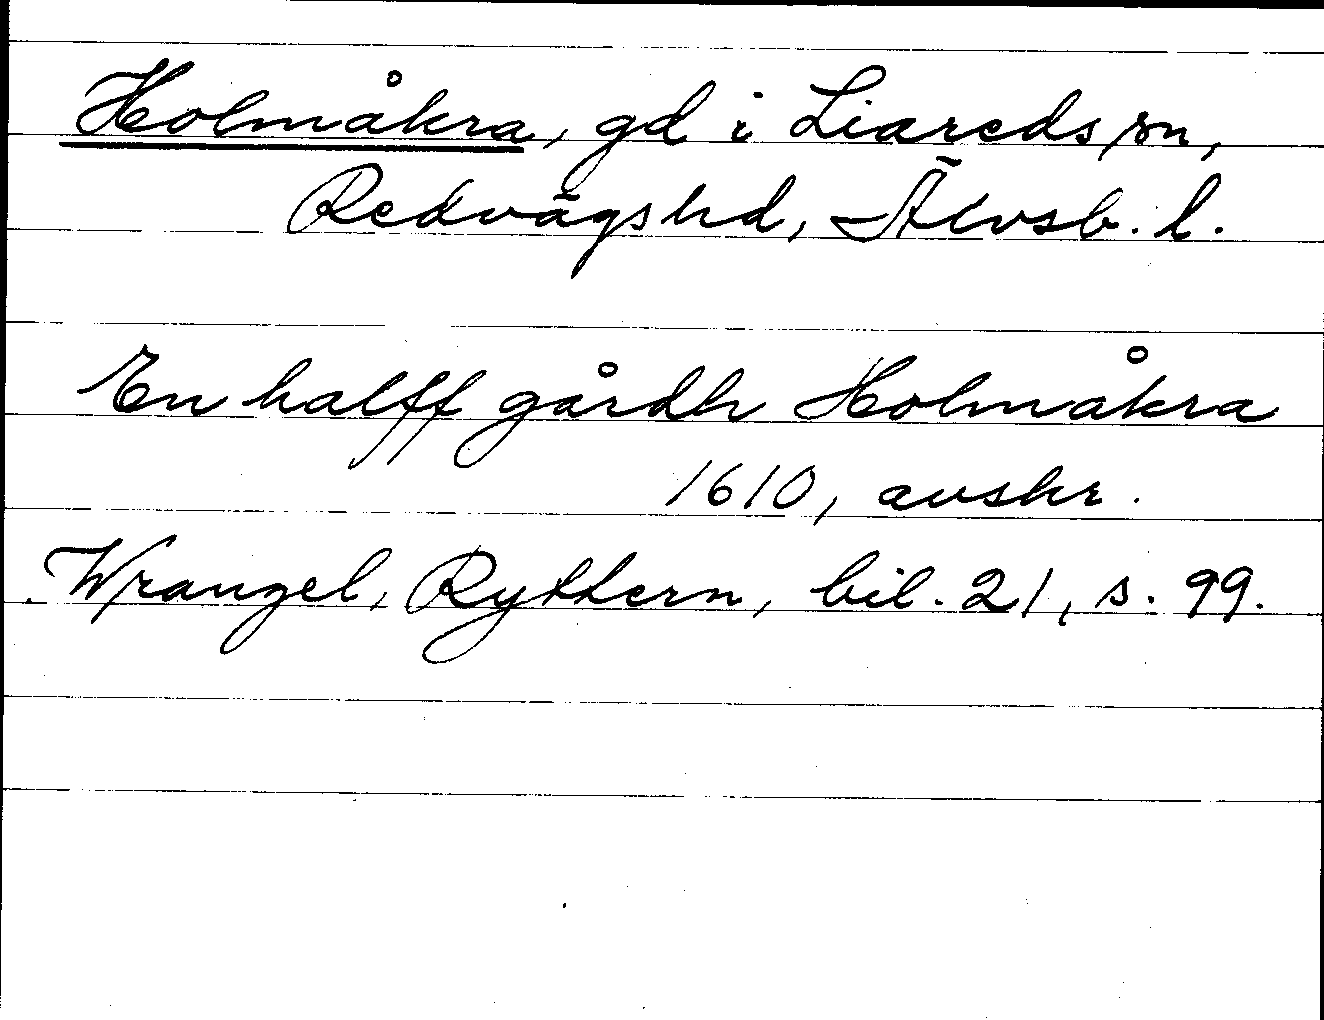 Holmåkra, gd i Liareds sn,
Redvägs hd, Älvsb. l.
En halff gårdh Holmåkra
1610, avskr.
Wrangel, Ryttern, bil. 21, s. 99.